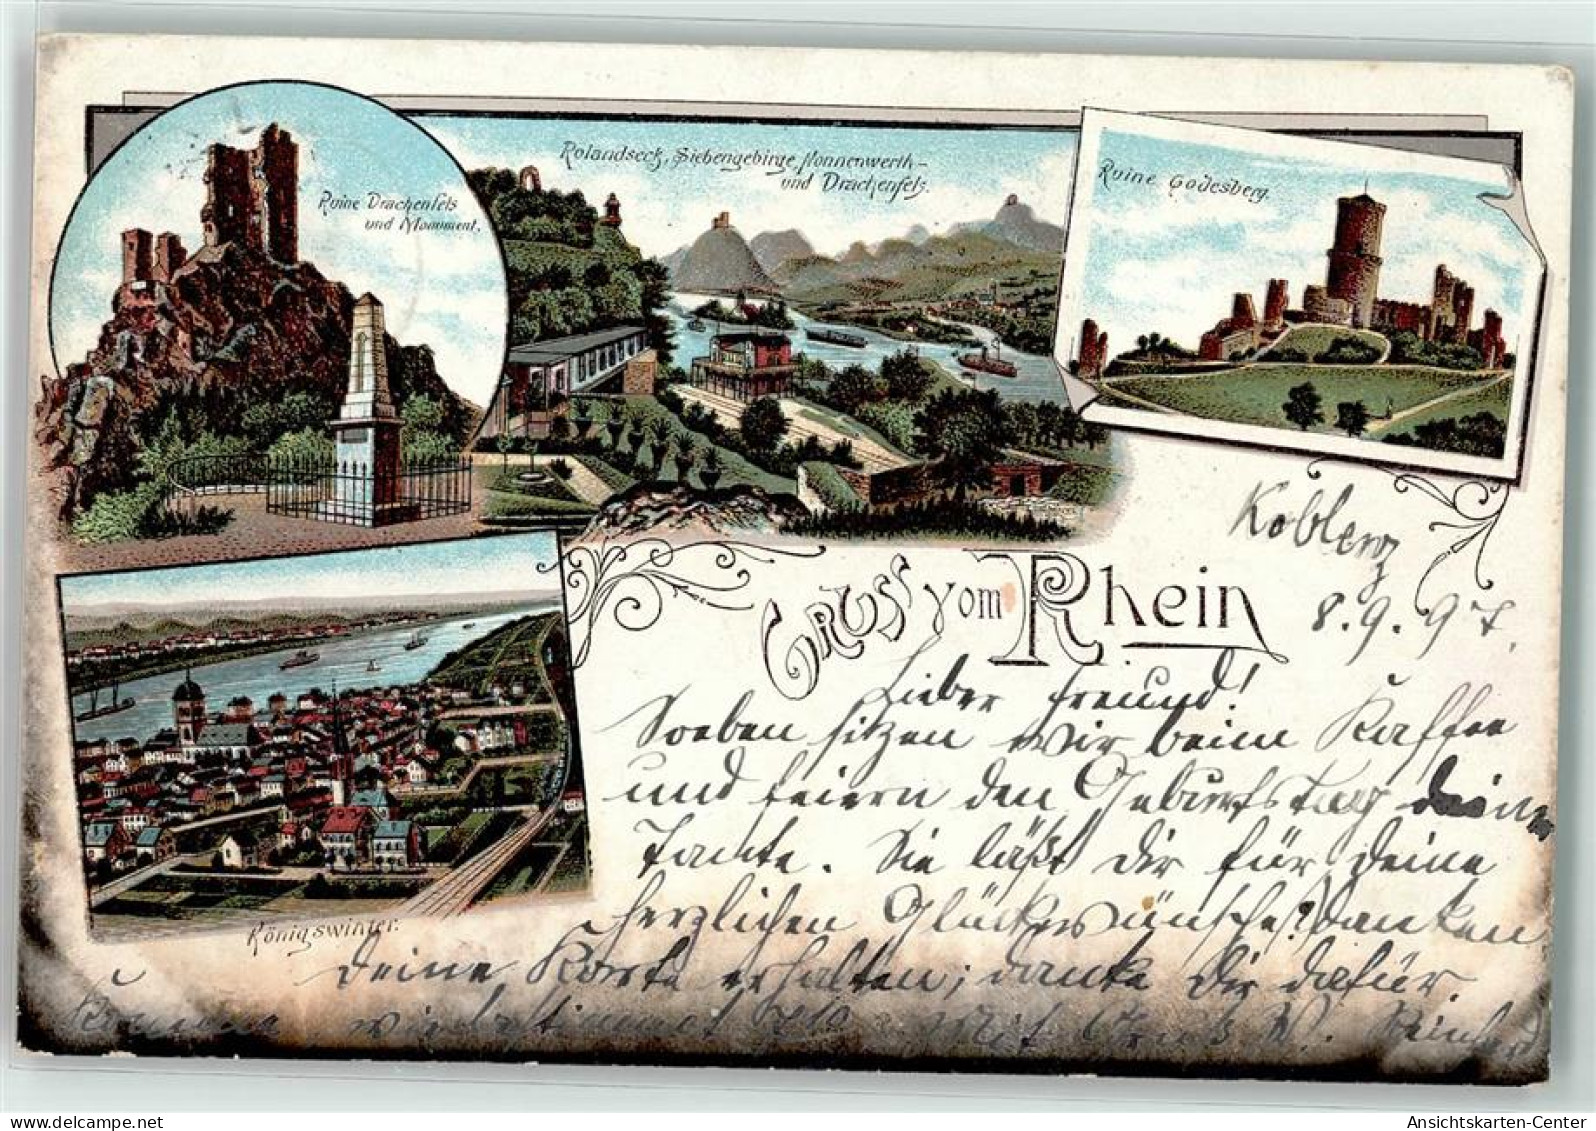 Ruine Drachenfels
und Monument.
Rolandseck, Siebengebirge, Nonnenwerth-
und Drachenfels.
Ruine Godesberg.
Königswinter.
Gruss vom Rhein
Koblenz
8.9.97.
Lieber Freund!
Soeben sitzen wir beim Kaffee
und feiern den Geburtstag deiner
Tante. Sie läßt Dir für Deine
herzlichen Glückwünsche danken
Deine Karte erhalten; danke Dir dafür.
Komme wir bestimmt Mit Gruß W.
Ansichtskarten-Center